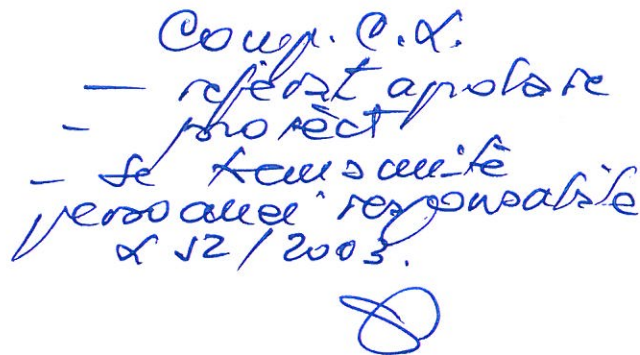 Comp. C.L.
— referat aprobare
- proiect
- se transmite
persoanei responsabile
L 52/2003.